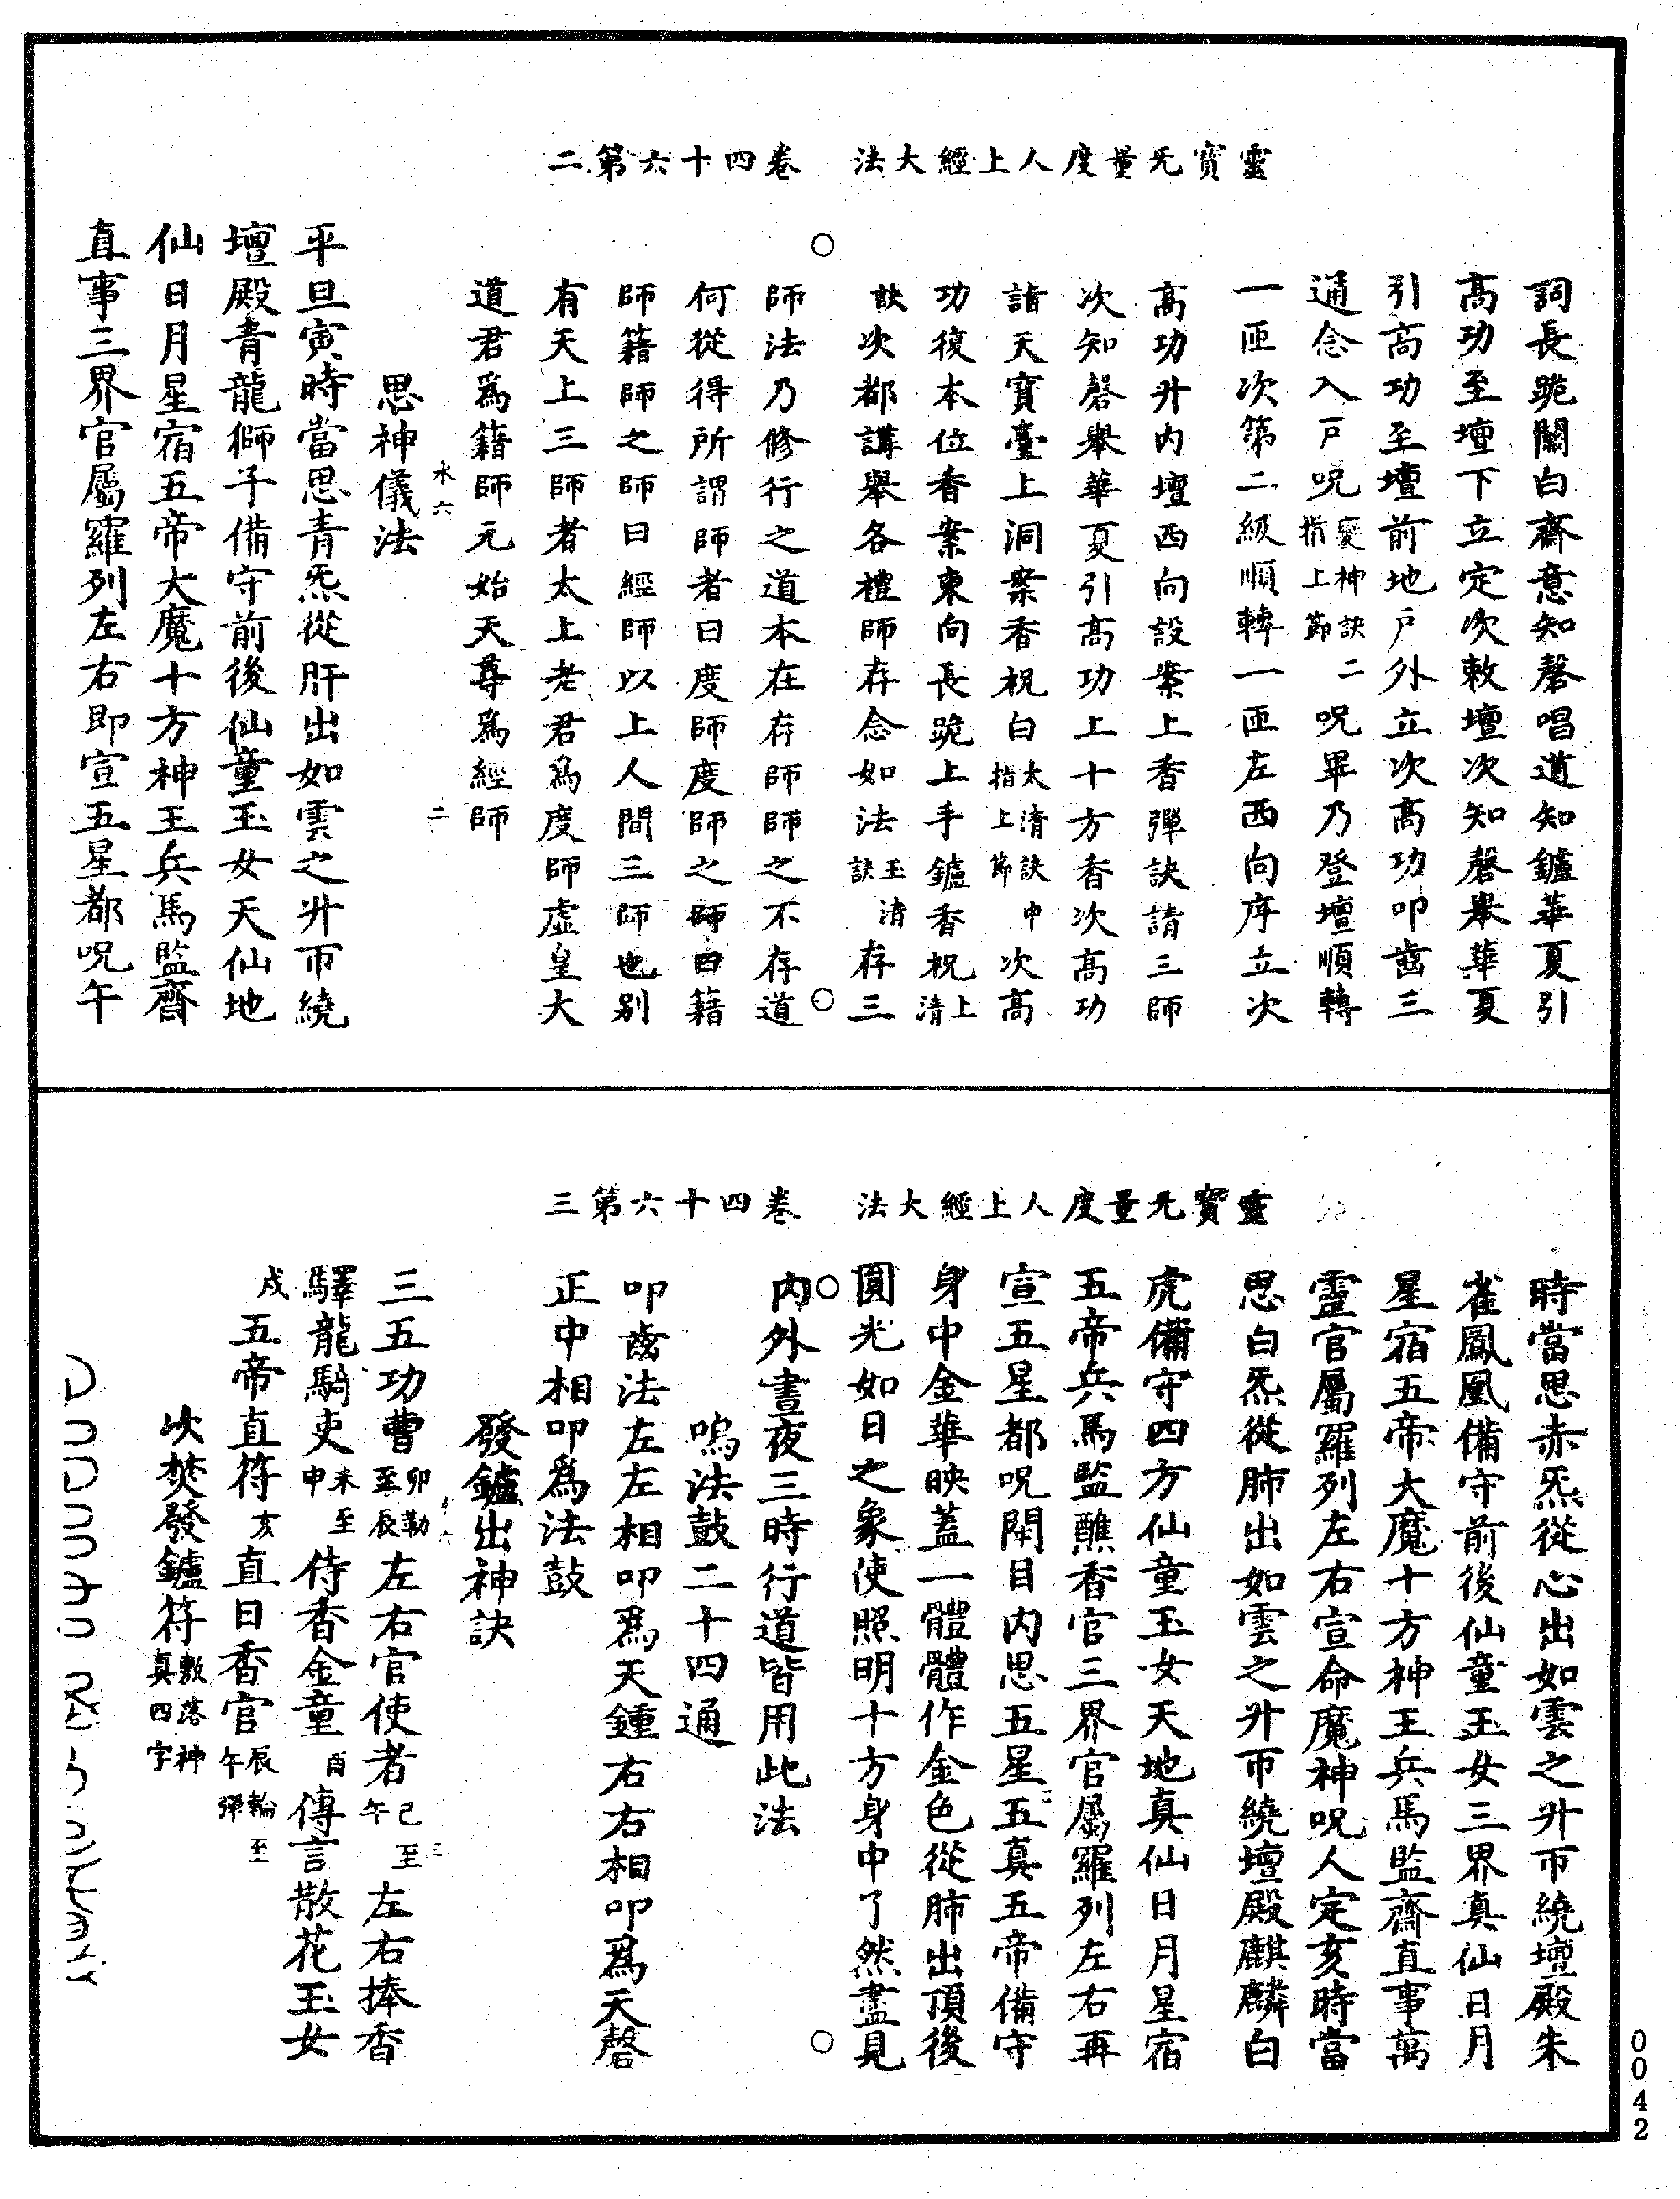 靈寶无量度人上經大法　卷四十六第二
詞長跪關白齋意知磬唱道知鑪華夏引
高功至壇下立定次敕壇次知磬舉華夏
引高功至壇前地戶外立次高功叩齒三
通念入戶呪變神訣二指上節呪畢乃登壇順轉
一匝次第二級順轉一匝左西向序立次
高功升內壇西向設案上香彈訣請三師
次知磬舉華夏引高功上十方香次高功
詣天寶臺上洞案香祝白太清訣中指上節次高
功復本位香案東向長跪上手鑪香祝上清
訣次都講舉各禮師存念如法玉清訣存三
師法乃修行之道本在存師師之不存道
何從得所謂師者曰度師度師之師曰籍
師籍師之師曰經師以上人間三師也别
有天上三師者太上老君爲度師虛皇大
道君爲籍師元始天尊爲經師
水六　二
思神儀法
平旦寅時當思青炁從肝出如雲之升帀繞
壇殿青龍獅子備守前後仙童玉女天仙地
仙日月星宿五帝大魔十方神王兵馬監齋
直事三界官屬羅列左右即宣五星都呪午
靈寶无量度人上經大法　卷四十六第三
時當思赤炁從心出如雲之升帀繞壇殿朱
雀鳳凰備守前後仙童玉女三界真仙日月
星宿五帝大魔十方神王兵馬監齋直事萬
靈官屬羅列左右宣命魔神呪人定亥時當
思白炁從肺出如雲之升帀繞壇殿麒麟白
虎備守四方仙童玉女天地真仙日月星宿
五帝兵馬監醮香官三界官屬羅列左右再
宣五星都呪閉目内思五星五真五帝備守
身中金華映蓋一體體作金色從肺出頂後
圓光如日之象使照明十方身中了然盡見
内外晝夜三時行道皆用此法
鳴法鼓二十四通
叩齒法左左相叩爲天鍾右右相叩爲天磬
正中相叩爲法鼓
發鑪出神訣
三
三五功曹卯勒至辰左右官使者巳至午左右捧香
驛龍騎吏未至申侍香金童酉傳言散花玉女
戌五帝直符亥直日香官辰輪至午彈
吹焚發鑪符敷落神真四字
0042